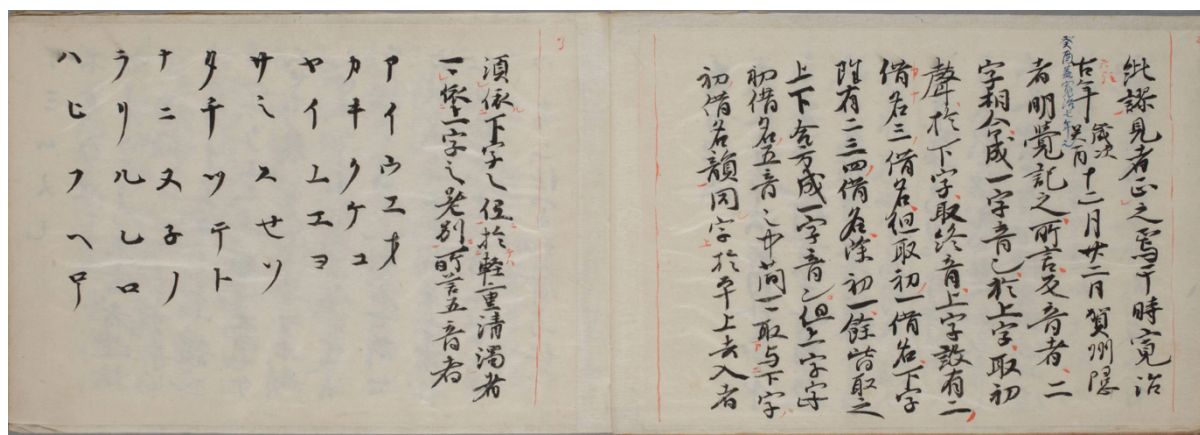 此謬見者正之焉于時寛治
古年歳次癸酉十二月廿二日賀州隠
癸酉蓋寛治七年也
者明覺記之所言反音者二
字相合成一字音也於上字取初
聲於下字取終音上字設有二
借名三借名但取初一借名下字
雖有二三四借名除初一餘皆取之
上下合方成一字音也但上字定
初借名五音之中簡一取与下字
初借名韻同字於平上去入者
須依下字之位於軽重清濁者
一依上字之差別所言五音者
アイウエオ
カキクケコ
ヤイユエヨ
サシスセソ
タチツテト
ナニヌ子ノ
ラリルレロ
ハヒフヘホ